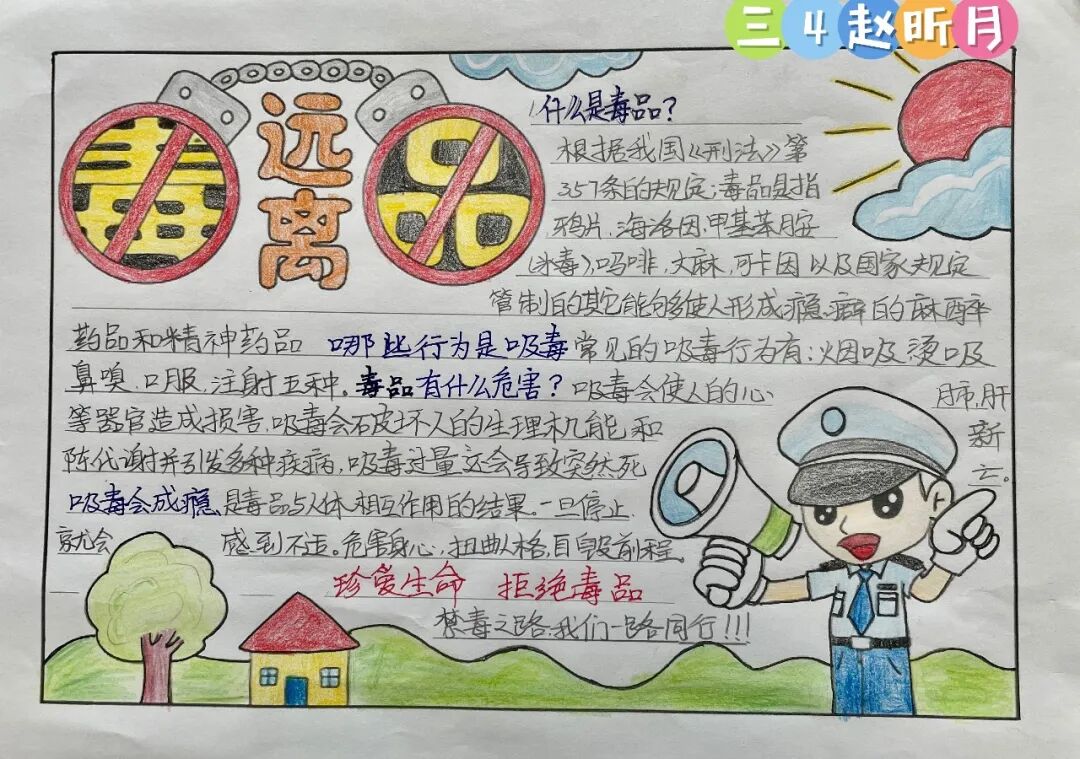 三4赵昕月
远离
毒品
1.什么是毒品?
根据我国《刑法》第
357条的规定;毒品是指
鸦片.海洛因.甲基苯胺
(冰毒),吗啡,大麻,可卡因以及国家规定
管制的其它能够使人形成瘾癖的麻醉
药品和精神药品 哪些行为是吸毒 常见的吸毒行为有:烟吸烫吸
鼻嗅.口服.注射五种。毒品有什么危害?吸毒会使人的心 肺,肝
等器官造成损害.吸毒会破坏人的生理机能和 新
陈代谢并引发多种疾病,吸毒过量还会导致突然死 亡。
吸毒会成瘾.是毒品与人体相互作用的结果。一旦停止.
就会 感到不适。危害身心,扭曲人格,自毁前程.
珍爱生命 拒绝毒品
禁毒之路.我们一路同行!!!